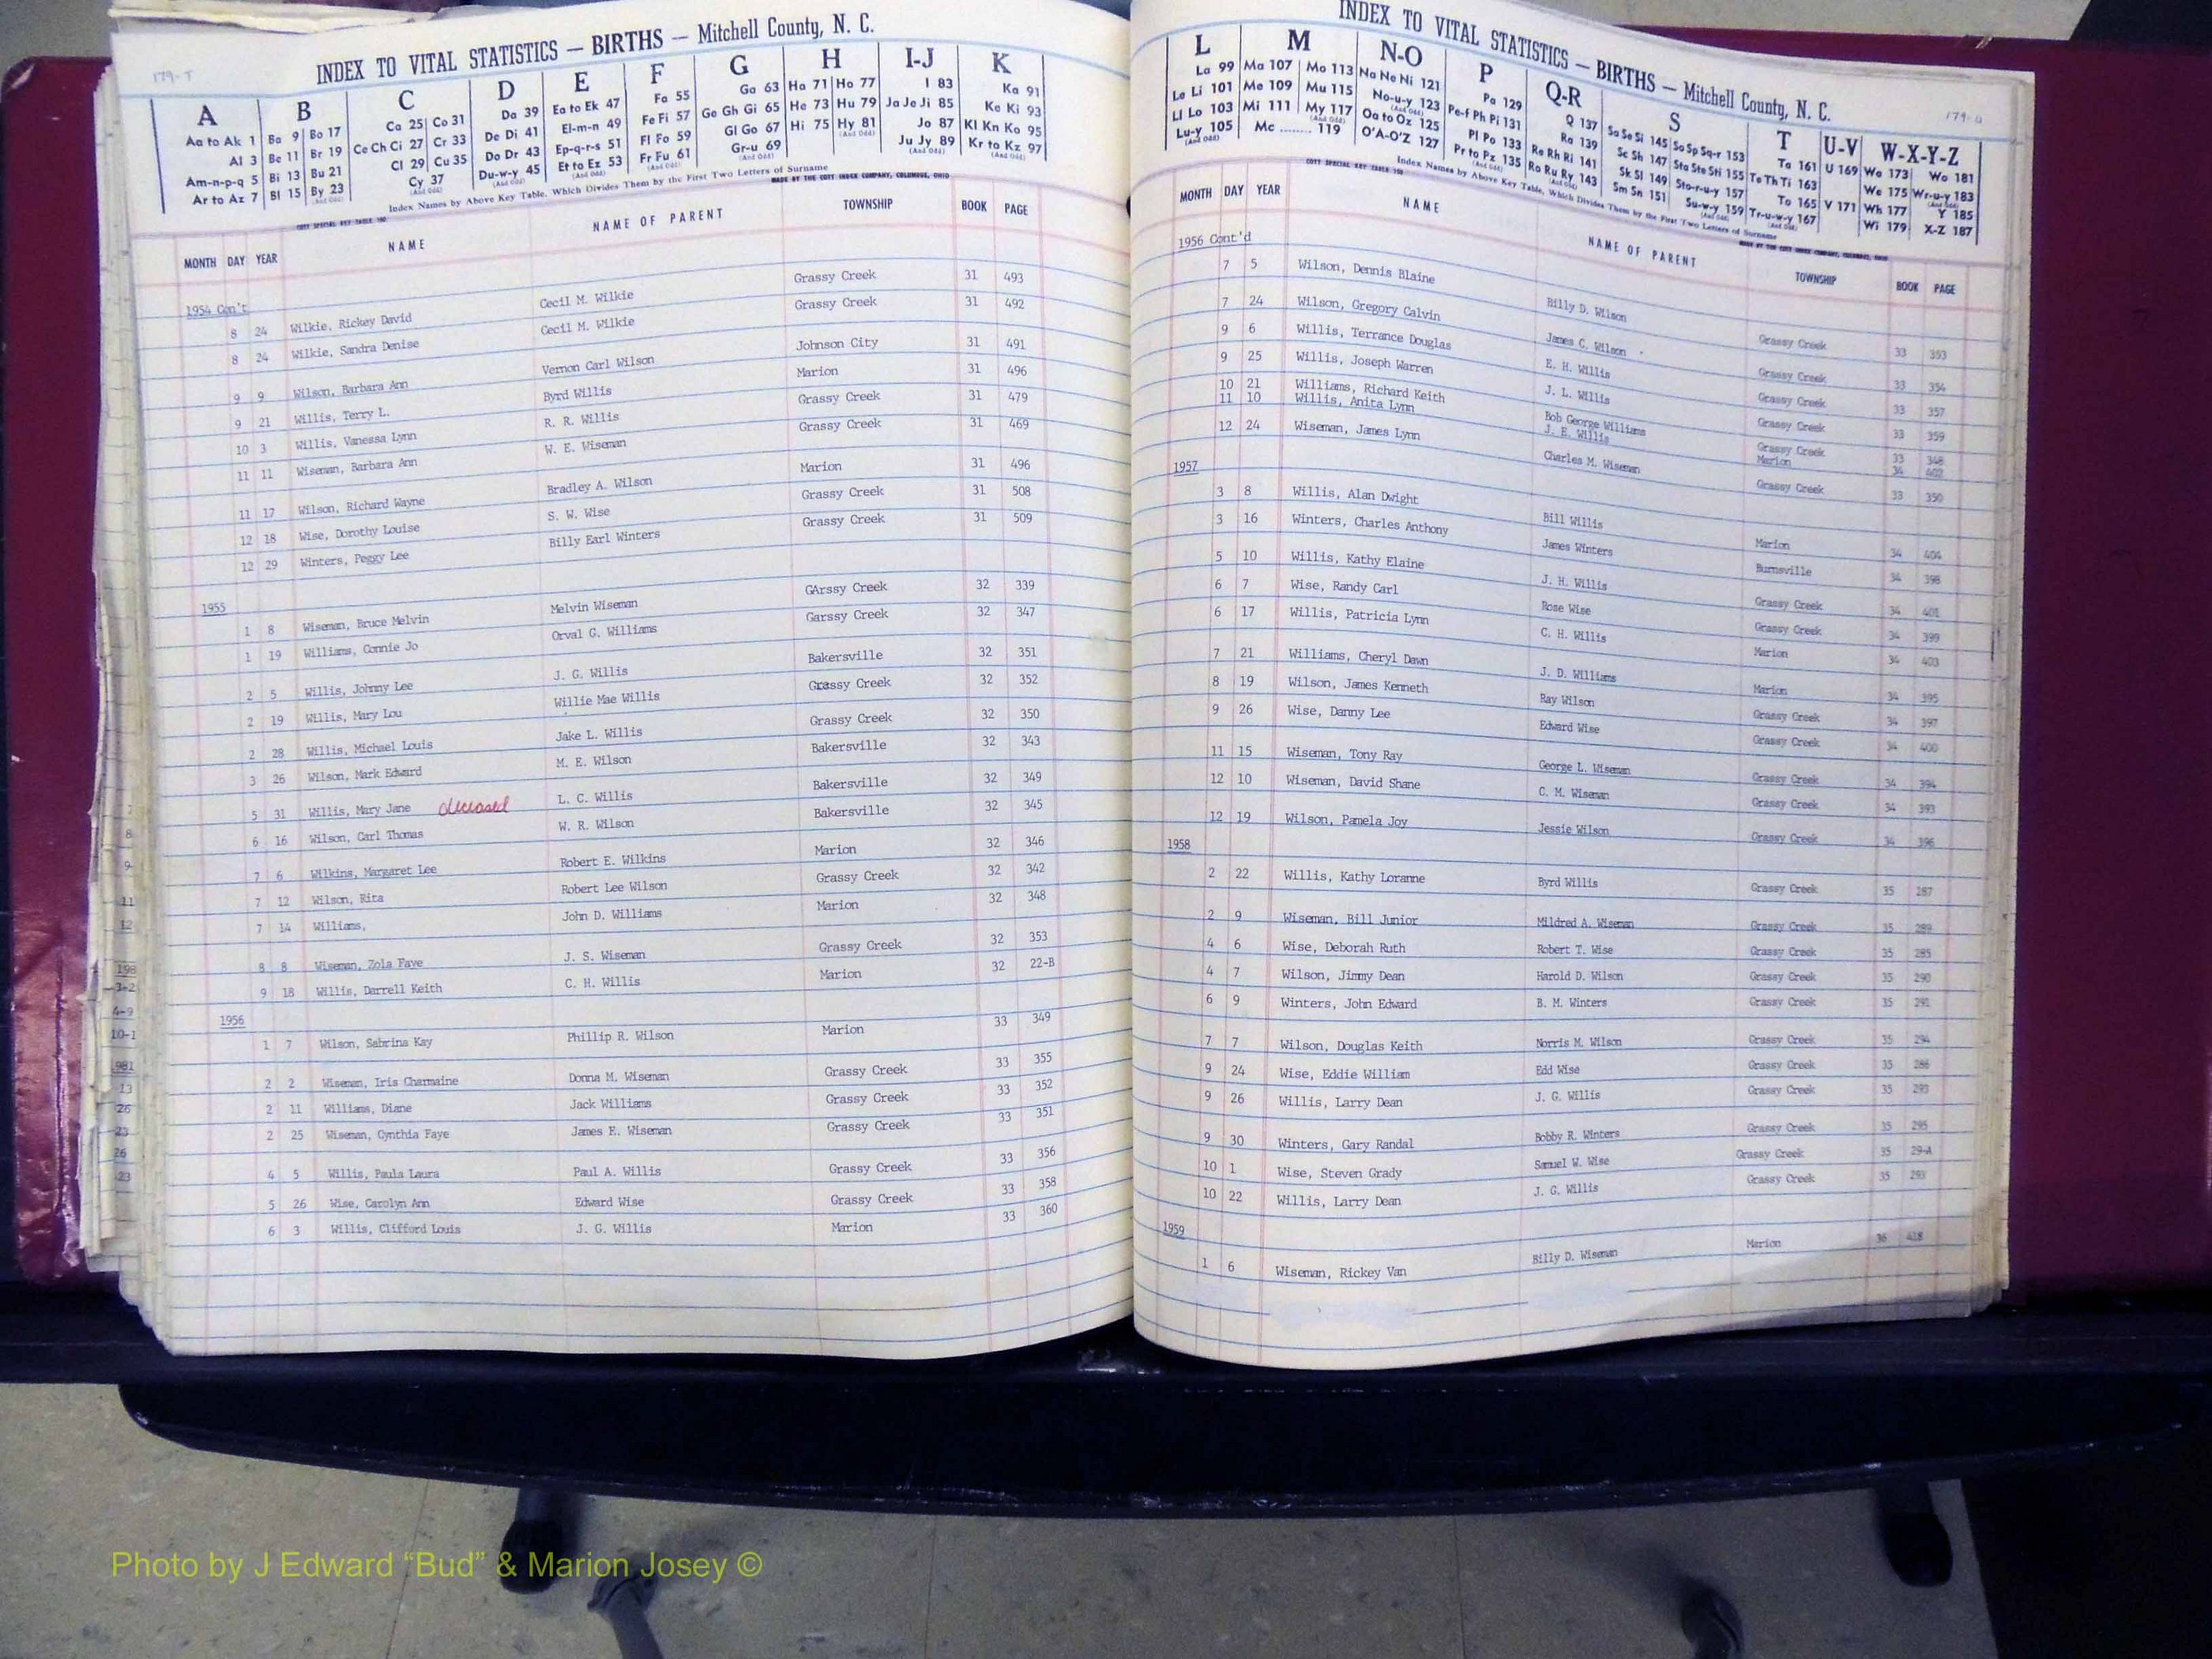 179-T
INDEX TO VITAL STATISTICS — BIRTHS — Mitchell County, N. C.
A B C D E F G H I-J K
Aa to Ak 1 Ba 9 Bo 17 Ca 25 Co 31 Da 39 Ea to Ek 47 Fa 55 Ga 63 Ha 71 Ho 77 I 83 Ka 91
Al 3 Be 11 Br 19 Ce Ch Ci 27 Cr 33 De Di 41 El-m-n 49 Fe Fi 57 Ge Gh Gi 65 He 73 Hu 79 Ja Je Ji 85 Ke Ki 93
Am-n-p-q 5 Bi 13 Bu 21 Cl 29 Cu 35 Do Dr 43 Ep-q-r-s 51 Fl Fo 59 Gl Go 67 Hi 75 Hy 81 (And Odd) Jo 87 Kl Kn Ko 95
Ar to Az 7 Bl 15 By 23 (And Odd) Cy 37 (And Odd) Du-w-y 45 (And Odd) Et to Ez 53 Fr Fu 61 (And Odd) Gr-u 69 (And Odd) Ju Jy 89 (And Odd) Kr to Kz 97 (And Odd)
Index Names by Above Key Table, Which Divides Them by the First Two Letters of Surname
COTT SPECIAL KEY TABLE 100 MADE BY THE COTT INDEX COMPANY, COLUMBUS, OHIO
MONTH DAY YEAR NAME NAME OF PARENT TOWNSHIP BOOK PAGE
1954 Con't
8 24 Wilkie, Rickey David Cecil M. Wilkie Grassy Creek 31 493
8 24 Wilkie, Sandra Denise Cecil M. Wilkie Grassy Creek 31 492
9 9 Wilson, Barbara Ann Vernon Carl Wilson Johnson City 31 491
9 21 Willis, Terry L. Byrd Willis Marion 31 496
10 3 Willis, Vanessa Lynn R. R. Willis Grassy Creek 31 479
11 11 Wiseman, Barbara Ann W. E. Wiseman Grassy Creek 31 469
11 17 Wilson, Richard Wayne Bradley A. Wilson Marion 31 496
12 18 Wise, Dorothy Louise S. W. Wise Grassy Creek 31 508
12 29 Winters, Peggy Lee Billy Earl Winters Grassy Creek 31 509
1955
1 8 Wiseman, Bruce Melvin Melvin Wiseman GArssy Creek 32 339
1 19 Williams, Connie Jo Orval G. Williams Garssy Creek 32 347
2 5 Willis, Johnny Lee J. G. Willis Bakersville 32 351
2 19 Willis, Mary Lou Willie Mae Willis Grassy Creek 32 352
2 28 Willis, Michael Louis Jake L. Willis Grassy Creek 32 350
3 26 Wilson, Mark Edward M. E. Wilson Bakersville 32 343
5 31 Willis, Mary Jane deceased L. C. Willis Bakersville 32 349
6 16 Wilson, Carl Thomas W. R. Wilson Bakersville 32 345
7 6 Wilkins, Margaret Lee Robert E. Wilkins Marion 32 346
7 12 Wilson, Rita Robert Lee Wilson Grassy Creek 32 342
7 14 Williams, John D. Williams Marion 32 348
8 8 Wiseman, Zola Faye J. S. Wiseman Grassy Creek 32 353
9 18 Willis, Darrell Keith C. H. Willis Marion 32 22-B
1956
1 7 Wilson, Sabrina Kay Phillip R. Wilson Marion 33 349
2 2 Wiseman, Iris Charmaine Donna M. Wiseman Grassy Creek 33 355
2 11 Williams, Diane Jack Williams Grassy Creek 33 352
2 25 Wiseman, Cynthia Faye James E. Wiseman Grassy Creek 33 351
4 5 Willis, Paula Laura Paul A. Willis Grassy Creek 33 356
5 26 Wise, Carolyn Ann Edward Wise Grassy Creek 33 358
6 3 Willis, Clifford Louis J. G. Willis Marion 33 360
INDEX TO VITAL STATISTICS — BIRTHS — Mitchell County, N. C.
179-U
L M N-O P Q-R S T U-V W-X-Y-Z
La 99 Ma 107 Mo 113 Na Ne Ni 121 Pa 129 Q 137 Sa Se Si 145 So Sp Sq-r 153 Ta 161 U 169 Wa 173 Wo 181
Le Li 101 Me 109 Mu 115 No-u-y 123 (And Odd) Pe-f Ph Pi 131 Ra 139 Sc Sh 147 Sta Ste Sti 155 Te Th Ti 163 We 175 Wr-u-y 183 (And Odd)
Ll Lo 103 Mi 111 My 117 (And Odd) Oa to Oz 125 Pl Po 133 Re Rh Ri 141 Sk Sl 149 Sto-r-u-y 157 To 165 V 171 Wh 177 Y 185
Lu-y 105 (And Odd) Mc 119 O'A-O'Z 127 Pr to Pz 135 Ro Ru Ry 143 Sm Sn 151 Su-w-y 159 (And Odd) Tr-u-w-y 167 (And Odd) Wi 179 X-Z 187
Index Names by Above Key Table, Which Divides Them by the First Two Letters of Surname
COTT SPECIAL KEY TABLE 100 MADE BY THE COTT INDEX COMPANY, COLUMBUS, OHIO
MONTH DAY YEAR NAME NAME OF PARENT TOWNSHIP BOOK PAGE
1956 Cont'd
7 5 Wilson, Dennis Blaine Billy D. Wilson Grassy Creek 33 353
7 24 Wilson, Gregory Calvin James C. Wilson Grassy Creek 33 354
9 6 Willis, Terrance Douglas E. H. Willis Grassy Creek 33 357
9 25 Willis, Joseph Warren J. L. Willis Grassy Creek 33 359
10 21 Williams, Richard Keith Bob George Williams Grassy Creek 33 348
11 10 Willis, Anita Lynn J. E. Willis Marion 34 402
12 24 Wiseman, James Lynn Charles M. Wiseman Grassy Creek 33 350
1957
3 8 Willis, Alan Dwight Bill Willis Marion 34 404
3 16 Winters, Charles Anthony James Winters Burnsville 34 398
5 10 Willis, Kathy Elaine J. H. Willis Grassy Creek 34 401
6 7 Wise, Randy Carl Rose Wise Grassy Creek 34 399
6 17 Willis, Patricia Lynn C. H. Willis Marion 34 403
7 21 Williams, Cheryl Dawn J. D. Williams Marion 34 395
8 19 Wilson, James Kenneth Ray Wilson Grassy Creek 34 397
9 26 Wise, Danny Lee Edward Wise Grassy Creek 34 400
11 15 Wiseman, Tony Ray George L. Wiseman Grassy Creek 34 394
12 10 Wiseman, David Shane C. M. Wiseman Grassy Creek 34 393
12 19 Wilson, Pamela Joy Jessie Wilson Grassy Creek 34 396
1958
2 22 Willis, Kathy Loranne Byrd Willis Grassy Creek 35 287
2 9 Wiseman, Bill Junior Mildred A. Wiseman Grassy Creek 35 289
4 6 Wise, Deborah Ruth Robert T. Wise Grassy Creek 35 285
4 7 Wilson, Jimmy Dean Harold D. Wilson Grassy Creek 35 290
6 9 Winters, John Edward B. M. Winters Grassy Creek 35 291
7 7 Wilson, Douglas Keith Norris M. Wilson Grassy Creek 35 294
9 24 Wise, Eddie William Edd Wise Grassy Creek 35 286
9 26 Willis, Larry Dean J. G. Willis Grassy Creek 35 293
9 30 Winters, Gary Randal Bobby R. Winters Grassy Creek 35 295
10 1 Wise, Steven Grady Samuel W. Wise Grassy Creek 35 29-A
10 22 Willis, Larry Dean J. G. Willis Grassy Creek 35 293
1959
1 6 Wiseman, Rickey Van Billy D. Wiseman Marion 36 418
Photo by J Edward “Bud” & Marion Josey ©